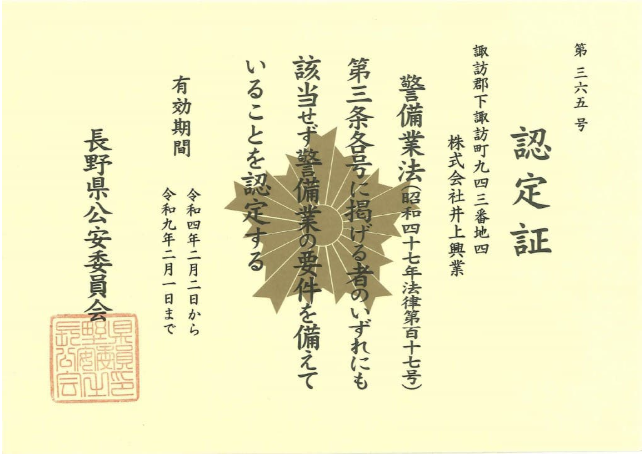 第三六五号
認定証
諏訪郡下諏訪町九四三番地四
株式会社井上興業
警備業法(昭和四十七年法律第百十七号)
第三条各号に掲げる者のいずれにも
該当せず警備業の要件を備えて
いることを認定する
有効期間
令和四年二月二日から
令和九年二月一日まで
長野県公安委員会